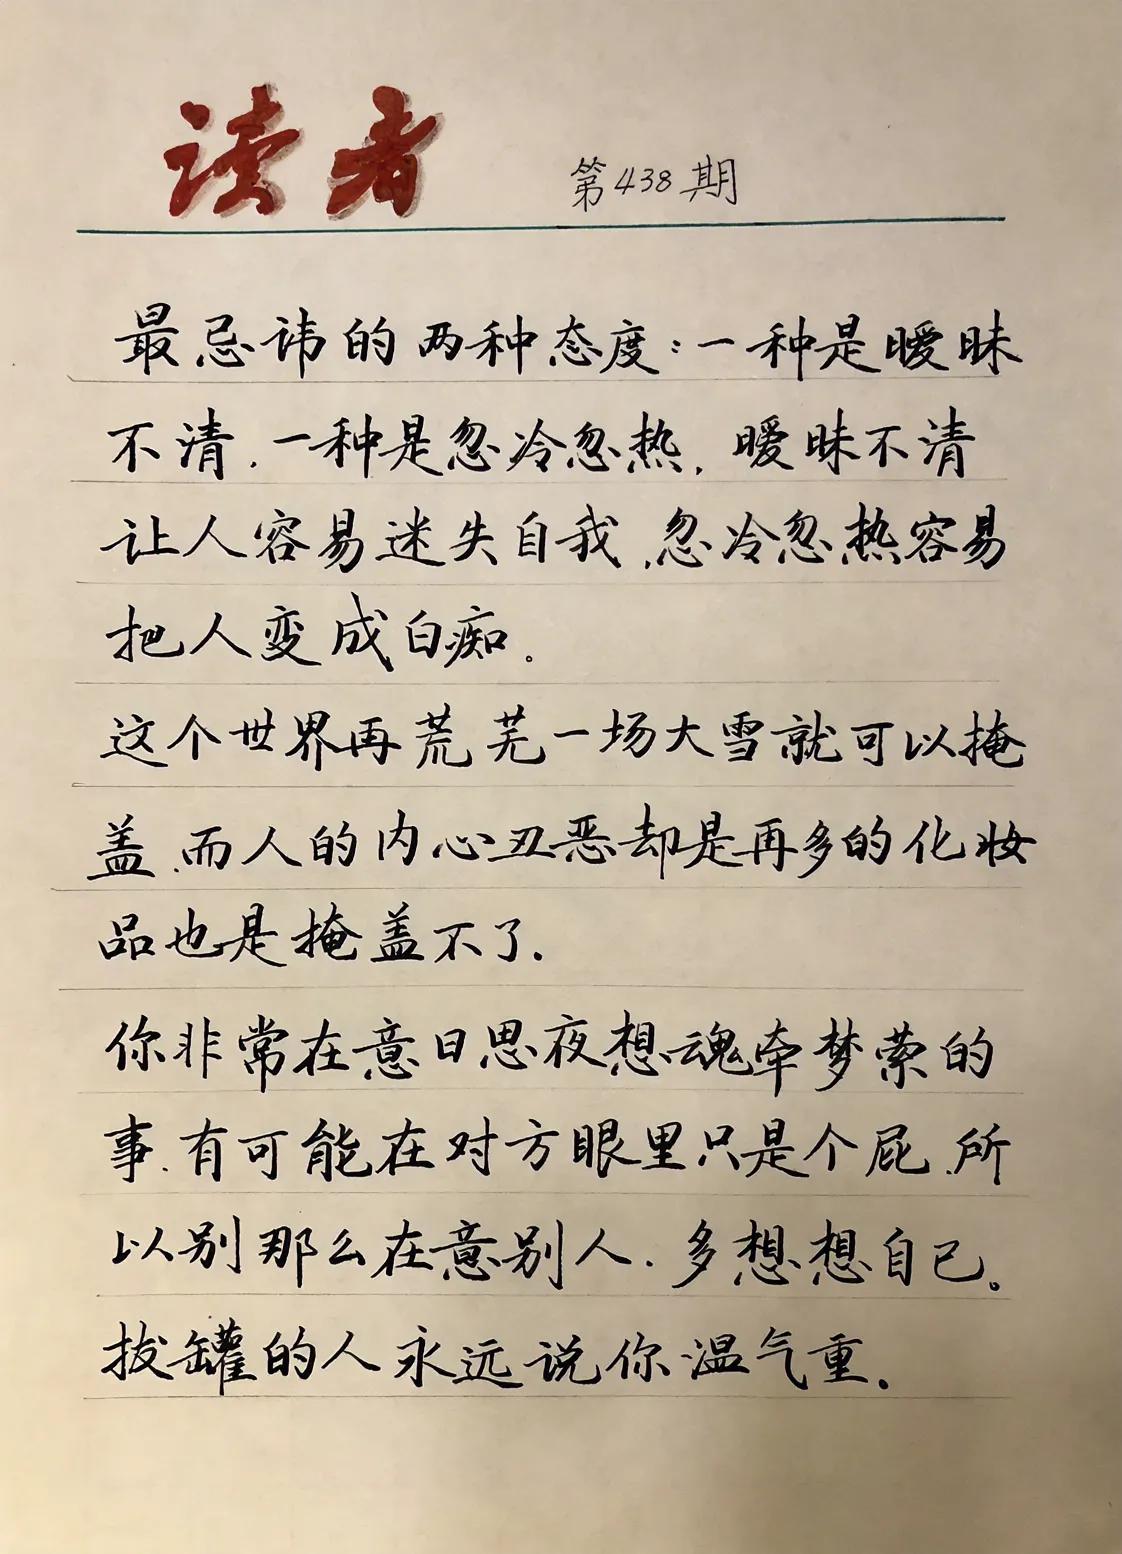 读者
第438期
最忌讳的两种态度:一种是暧昧
不清,一种是忽冷忽热,暧昧不清
让人容易迷失自我,忽冷忽热容易
把人变成白痴。
这个世界再荒芜一场大雪就可以掩
盖,而人的内心丑恶却是再多的化妆
品也是掩盖不了.
你非常在意日思夜想魂牵梦萦的
事,有可能在对方眼里只是个屁,所
以别那么在意别人.多想想自己。
拔罐的人永远说你温气重.